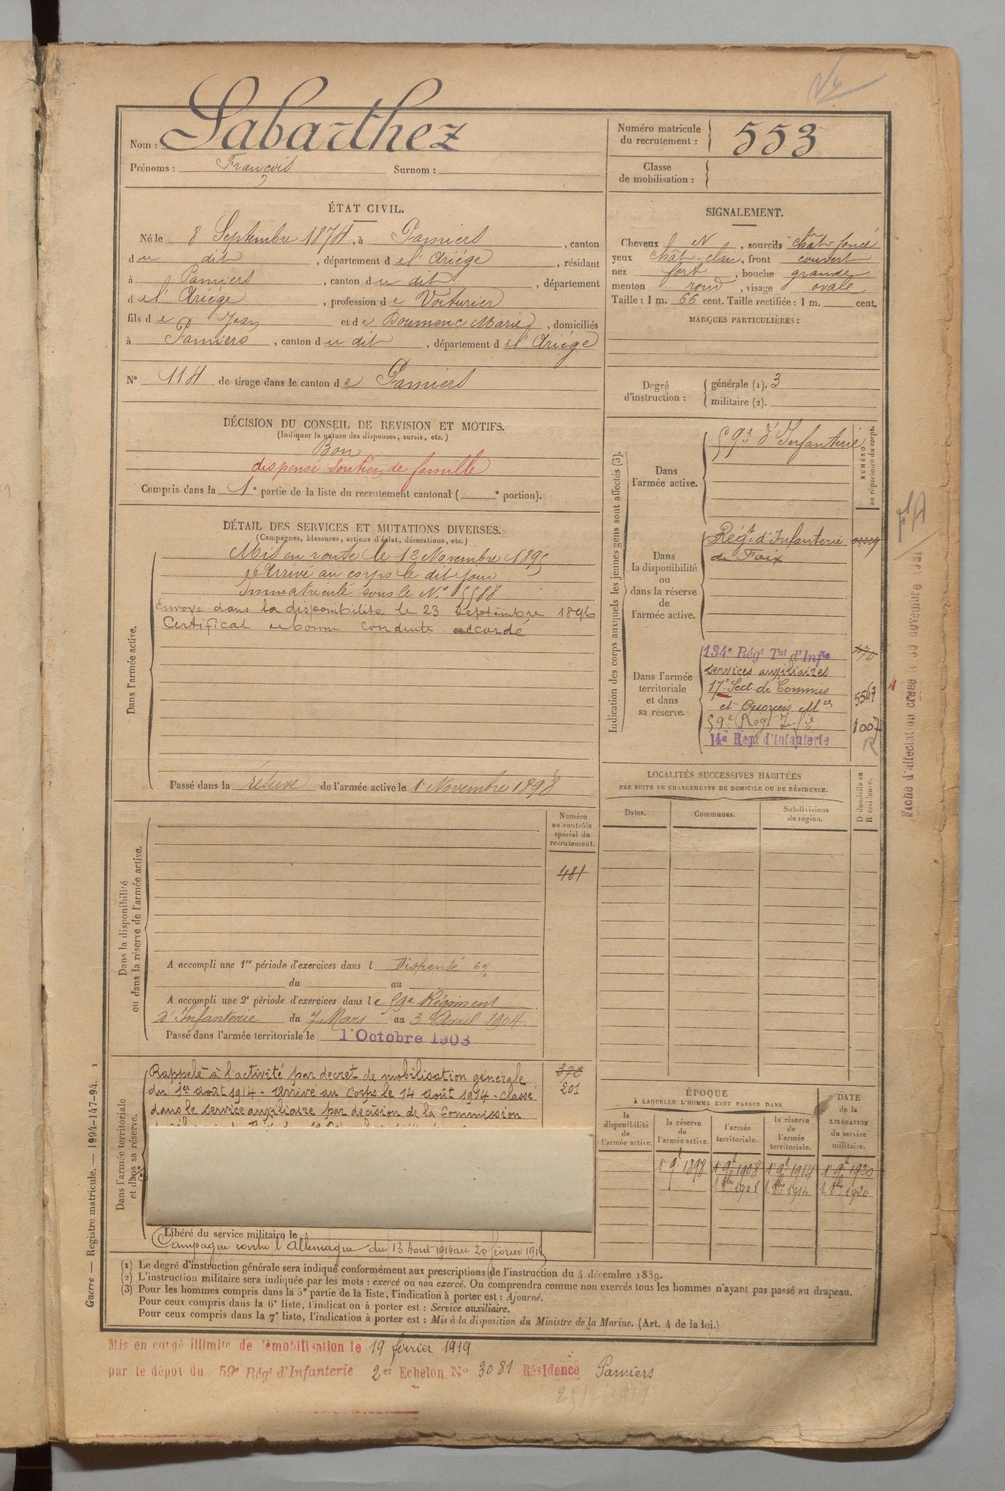 Nom : Labarthez
Prénoms : François Surnom :
Numéro matricule du recrutement : 553
Classe de mobilisation :
ÉTAT CIVIL.
Né le 8 Septembre 1874, à Pamiers, canton
du dit, département de l'Ariège, résidant
à Pamiers, canton du dit, département
de l'Ariège, profession de Voiturier
fils de Jean et de Marie, domiciliés
à Pamiers, canton du dit, département de l'Ariège
N° 114 de tirage dans le canton de Pamiers
SIGNALEMENT.
Cheveux N, sourcils chât foncé
yeux chât. clair, front couvert
nez fort, bouche grande
menton rond, visage ovale
Taille : 1 m. 66 cent. Taille rectifiée : 1 m. cent.
MARQUES PARTICULIÈRES :
Degré d'instruction : générale (1). 3
militaire (2).
DÉCISION DU CONSEIL DE REVISION ET MOTIFS.
(Indiquer la nature des dispenses, sursis, etc.)
Bon
dispensé soutien de famille
Compris dans la 1e partie de la liste du recrutement cantonal ( e portion).
DÉTAIL DES SERVICES ET MUTATIONS DIVERSES.
(Campagnes, blessures, actions d'éclat, décorations, etc.)
Dans l'armée active.
Mis en route le Novembre 1895
Arrivé au corps le dit jour
Immatriculé sous le N°
Envoyé dans la disponibilité le 23 Septembre 1896
Certificat de bonne conduite accordé
Passé dans la réserve de l'armée active le 1 Novembre 1898
Indication des corps auxquels les jeunes gens sont affectés (3).
NUMÉRO au répertoire du corps.
Dans l'armée active.
59e d'Infanterie
Dans la disponibilité ou dans la réserve de l'armée active.
Régt d'Infanterie
de Foix
Dans l'armée territoriale et dans sa réserve.
134e Régt Tal d'Infie
services auxiliaires
17e Sect de Commis
et Ouvriers
5567
59e Regt
1007
14e Regt d'Infanterie
LOCALITÉS SUCCESSIVES HABITÉES
PAR SUITE DE CHANGEMENTS DE DOMICILE OU DE RÉSIDENCE.
Dates. Communes. Subdivisions de région. D domicile ou R résidence.
Dans la disponibilité ou dans la réserve de l'armée active.
Numéro au contrôle spécial du recrutement.
481
A accompli une 1re période d'exercices dans l Dispensé
du au
A accompli une 2e période d'exercices dans le 59e Régiment
d'Infanterie du 7 Mars au 3 Avril 1904
Passé dans l'armée territoriale le 1 Octobre 1908
Dans l'armée territoriale et dans sa réserve.
Rappelé à l'activité par décret de mobilisation générale
du 1er août 1914 - arrivé au Corps le 14 août 1914 - Classé
dans le service auxiliaire par décision de la Commission
201
Libéré du service militaire le
Campagne contre l'Allemagne du 13 Aout 1914 au 20 février 1919
ÉPOQUE
À LAQUELLE L'HOMME DOIT PASSER DANS
la disponibilité de l'armée active.
la réserve de l'armée active.
l'armée territoriale.
la réserve de l'armée territoriale.
DATE de la LIBÉRATION du service militaire.
1 9e 1898 1 9e 1908 1 9e 1914 1 9e 1920
1 8bre 1908 1 8bre 1914 1 8bre 1920
(1) Le degré d'instruction générale sera indiqué conformément aux prescriptions de l'instruction du 4 décembre 1889.
(2) L'instruction militaire sera indiquée par les mots : exercé ou non exercé. On comprendra comme non exercés tous les hommes n'ayant pas passé au drapeau.
(3) Pour les hommes compris dans la 5e partie de la liste, l'indication à porter est : Ajourné.
Pour ceux compris dans la 6e liste, l'indication à porter est : Service auxiliaire.
Pour ceux compris dans la 7e liste, l'indication à porter est : Mis à la disposition du Ministre de la Marine. (Art. 4 de la loi.)
Guerre — Registre matricule. — 1994-147-94.
Mis en congé illimité de démobilisation le 19 février 1919
par le dépôt du 59e Régt d'Infanterie 2e Echelon N° 3081 Résidence Pamiers